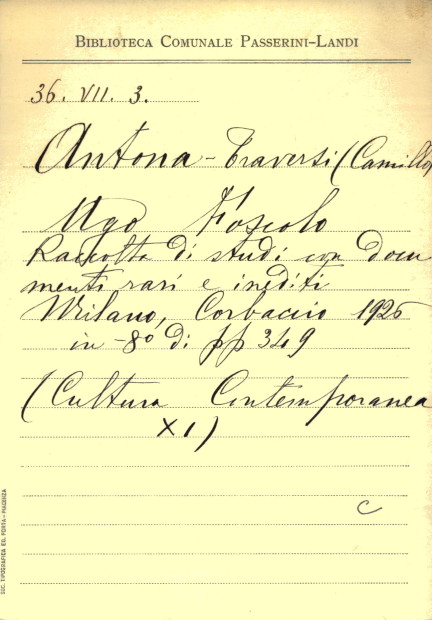 BIBLIOTECA COMUNALE PASSERINI-LANDI
36. VII. 3.
Antona-Traversi (Camillo)
Ugo Foscolo
Raccolta di studi con docu
menti rari e inediti
Milano, Corbaccio 1926
in-8º di pp 349
(Cultura Contemporanea
XI)
C
SOC. TIPOGRAFICA ED. PORTA - PIACENZA